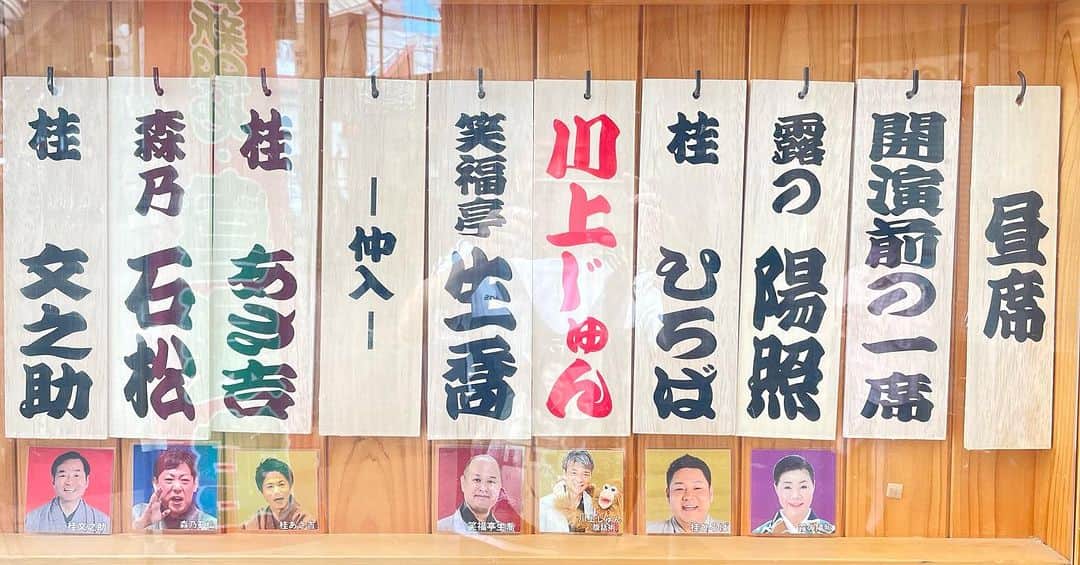 昼席
開演前の一席
露の 陽照
桂 ひろば
川上じゅん
笑福亭 生喬
ー仲入ー
桂 あさ吉
森乃 石松
桂 文之助
桂ひろば
川上じゅん
腹話術
笑福亭生喬
桂あさ吉
森乃石松
桂文之助